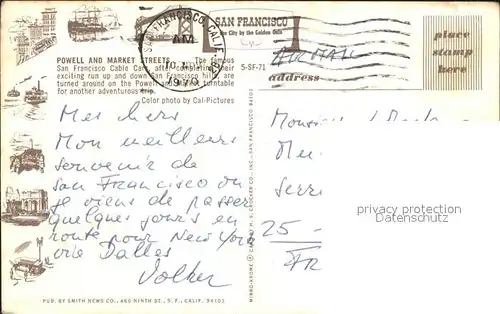 SAN FRANCISCO
The City by the Golden Gate
SAN FRANCISCO, CALIF.
AM
1970
AIR MAIL
place
stamp
here
address
POWELL AND MARKET STREETS
The famous
San Francisco Cable Cars, after completing their
exciting run up and down San Francisco hills, are
turned around on the Powell and Market turntable
for another adventurous trip.
Color photo by Cal-Pictures
5-SF-71
Mes chers
Mon meilleurs
souvenir de
San Francisco ou
je viens de passer
quelques jours en
route pour New York
via Dallas
Volker
Monsieur
25 -
privacy protection
Datenschutz
MIRRO-KROME ® CARD BY H. S. CROCKER CO., INC., SAN FRANCISCO 94101
PUB. BY SMITH NEWS CO., 460 NINTH ST., S. F., CALIF. 94103